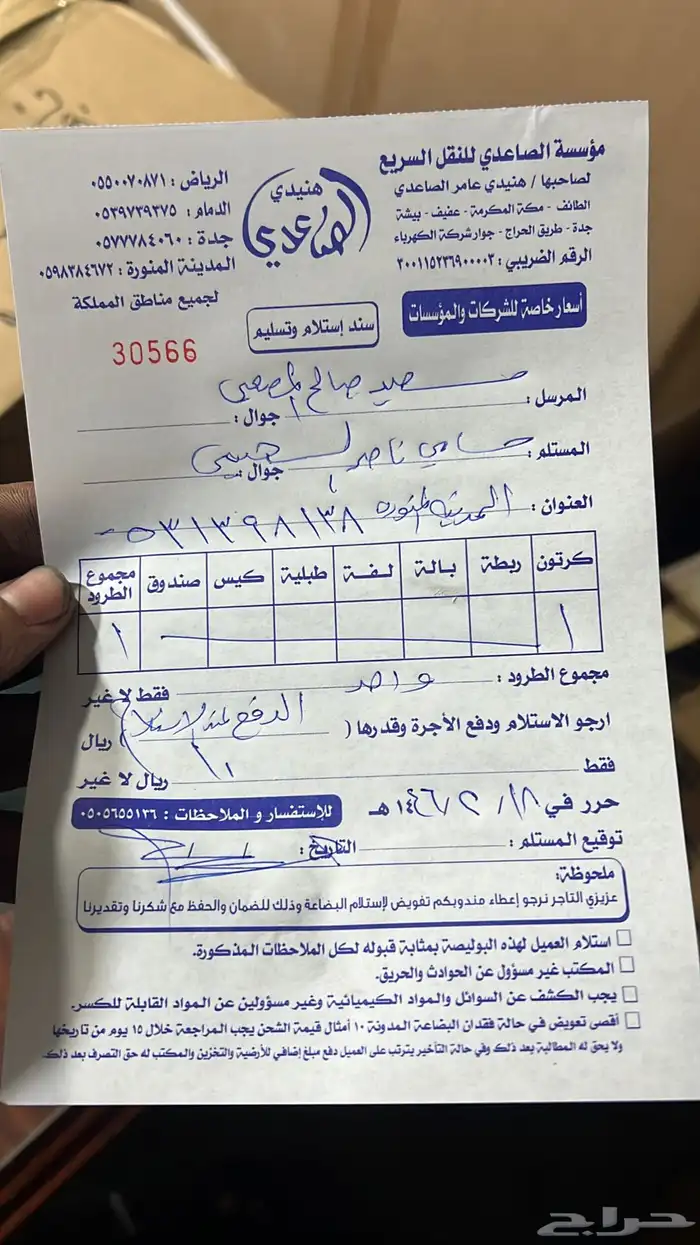 مؤسسة الصاعدي للنقل السريع
لصاحبها / هنيدي عامر الصاعدي
الطائف - مكة المكرمة - عفيف - بيشة
جدة - طريق الحراج - جوار شركة الكهرباء
الرقم الضريبي : ٣٠٠١١٥٢٣٦٩٠٠٠٠٣
هنيدي
الصاعدي
الرياض : ٠٥٥٠٠٧٠٨٧١
الدمام : ٠٥٣٩٧٣٩٣٧٥
جدة : ٠٥٧٧٧٨٤٠٦٠
المدينة المنورة : ٠٥٩٨٣٨٤٦٧٢
لجميع مناطق المملكة
أسعار خاصة للشركات والمؤسسات
سند إستلام وتسليم
30566
المرسل : صالح
جوال :
المستلم : سامي ناصر
جوال :
العنوان : المدينة المنورة ٠٥٣١٣٩٨١٣٨
كرتون ربطة بالة لفة طبلية كيس صندوق مجموع الطرود
١ ١
مجموع الطرود : واحد فقط لا غير
ارجو الاستلام ودفع الأجرة وقدرها ( الدفع عند الاستلام ) ريال
فقط ريال لا غير
حرر في ١٨ / ٢ / ١٤٤٦ هـ
للإستفسار و الملاحظات : ٠٥٠٥٦٥٥١٣٦
توقيع المستلم : التاريخ :
ملحوظة:
عزيزي التاجر نرجو إعطاء مندوبكم تفويض لإستلام البضاعة وذلك للضمان والحفظ مع شكرنا وتقديرنا
استلام العميل لهذه البوليصة بمثابة قبوله لكل الملاحظات المذكورة.
المكتب غير مسؤول عن الحوادث والحريق.
يجب الكشف عن السوائل والمواد الكيميائية وغير مسؤولين عن المواد القابلة للكسر.
أقصى تعويض في حالة فقدان البضاعة المدونة ١٠ أمثال قيمة الشحن يجب المراجعة خلال ١٥ يوم من تاريخها
ولا يحق له المطالبة بعد ذلك وفي حالة التأخير يترتب على العميل دفع مبلغ إضافي للأرضية والتخزين والمكتب له حق التصرف بعد ذلك.
حراج